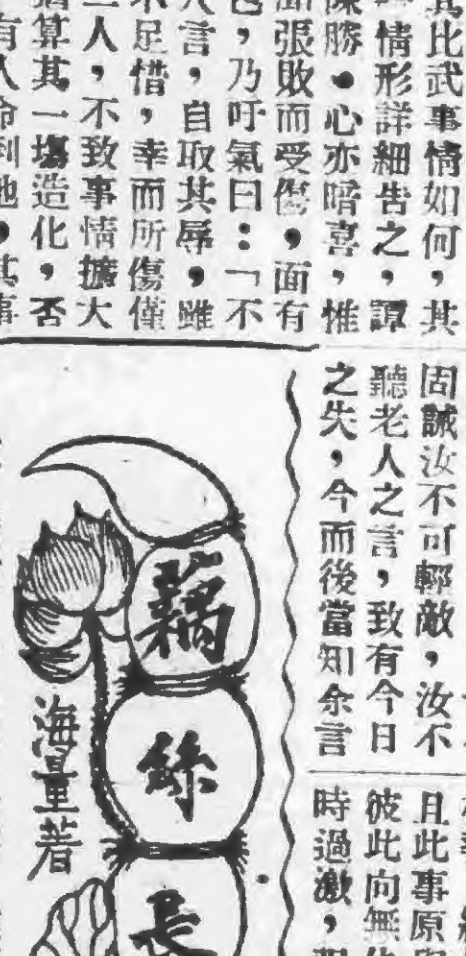 其比武事情如何,其
情形詳細告之,譚
陳勝。心亦暗喜,惟
聞張敗而受傷,面有
色,乃吁氣曰:「不
人言,自取其辱,雖
不足惜,幸而所傷僅
二人,不致事情擴大
猶算其一塲造化,否
有人命到地,其事
固誠汝不可輕敵,汝不
聽老人之言,致有今日
之失,今而後當知余言
且此事原
彼此向無
時過激,
藕絲長
海量著